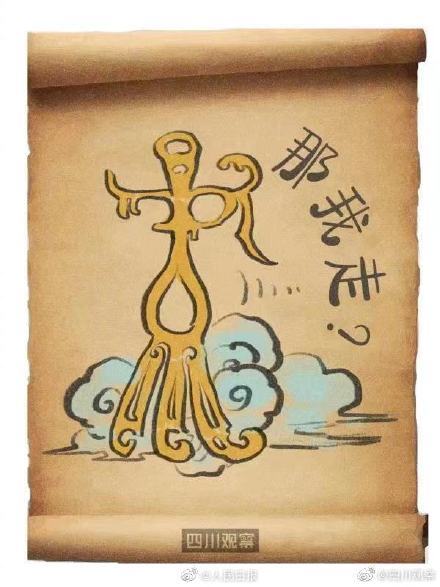 那我走?
四川观察
@人民日报
@四川观察